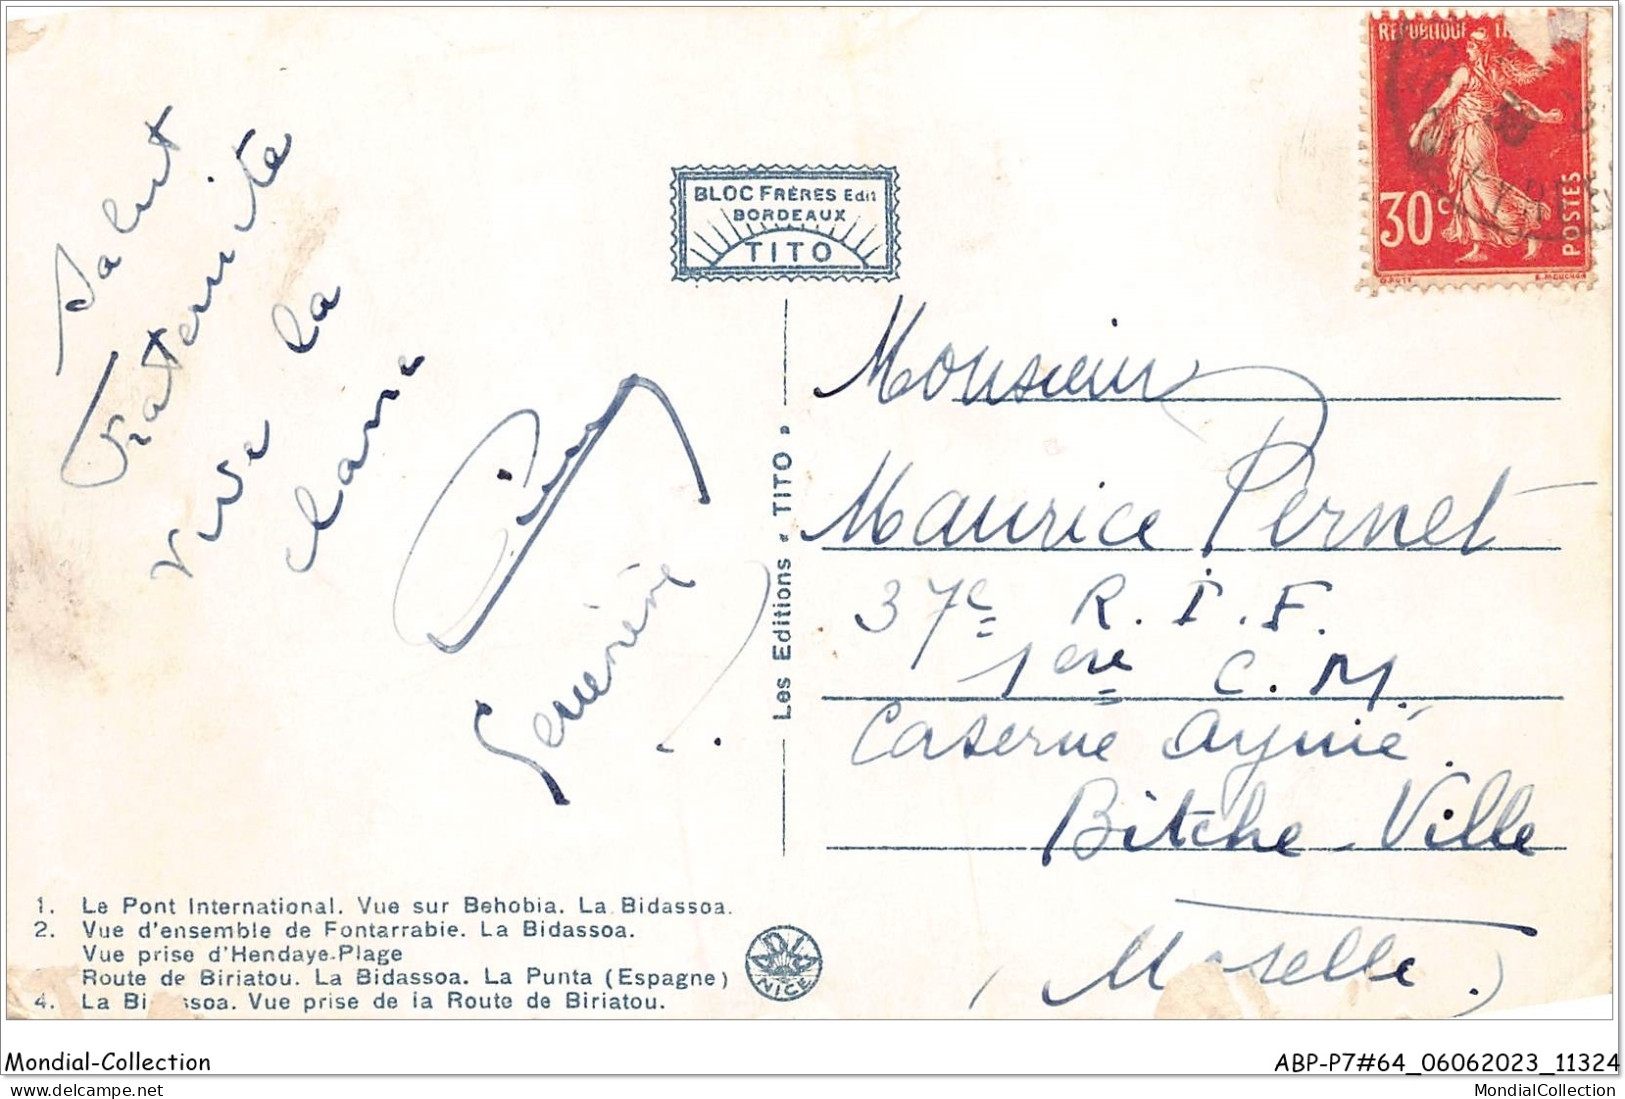 Salut
Fraternité
vive la
classe
Geneviève
BLOC FRÈRES Edit
BORDEAUX
TITO
REPUBLIQUE
30c
POSTES
38
Les Editions « TITO »
Monsieur
Maurice Pernet
37e R. I. F.
1ère C. M.
Caserne Aymé.
Bitche-Ville
(Moselle.)
1. Le Pont International. Vue sur Behobia. La Bidassoa.
2. Vue d'ensemble de Fontarrabie. La Bidassoa.
Vue prise d'Hendaye-Plage
Route de Biriatou. La Bidassoa. La Punta (Espagne)
4. La Bi ssoa. Vue prise de la Route de Biriatou.
NICE
Mondial-Collection
ABP-P7#64_06062023_11324
MondialCollection